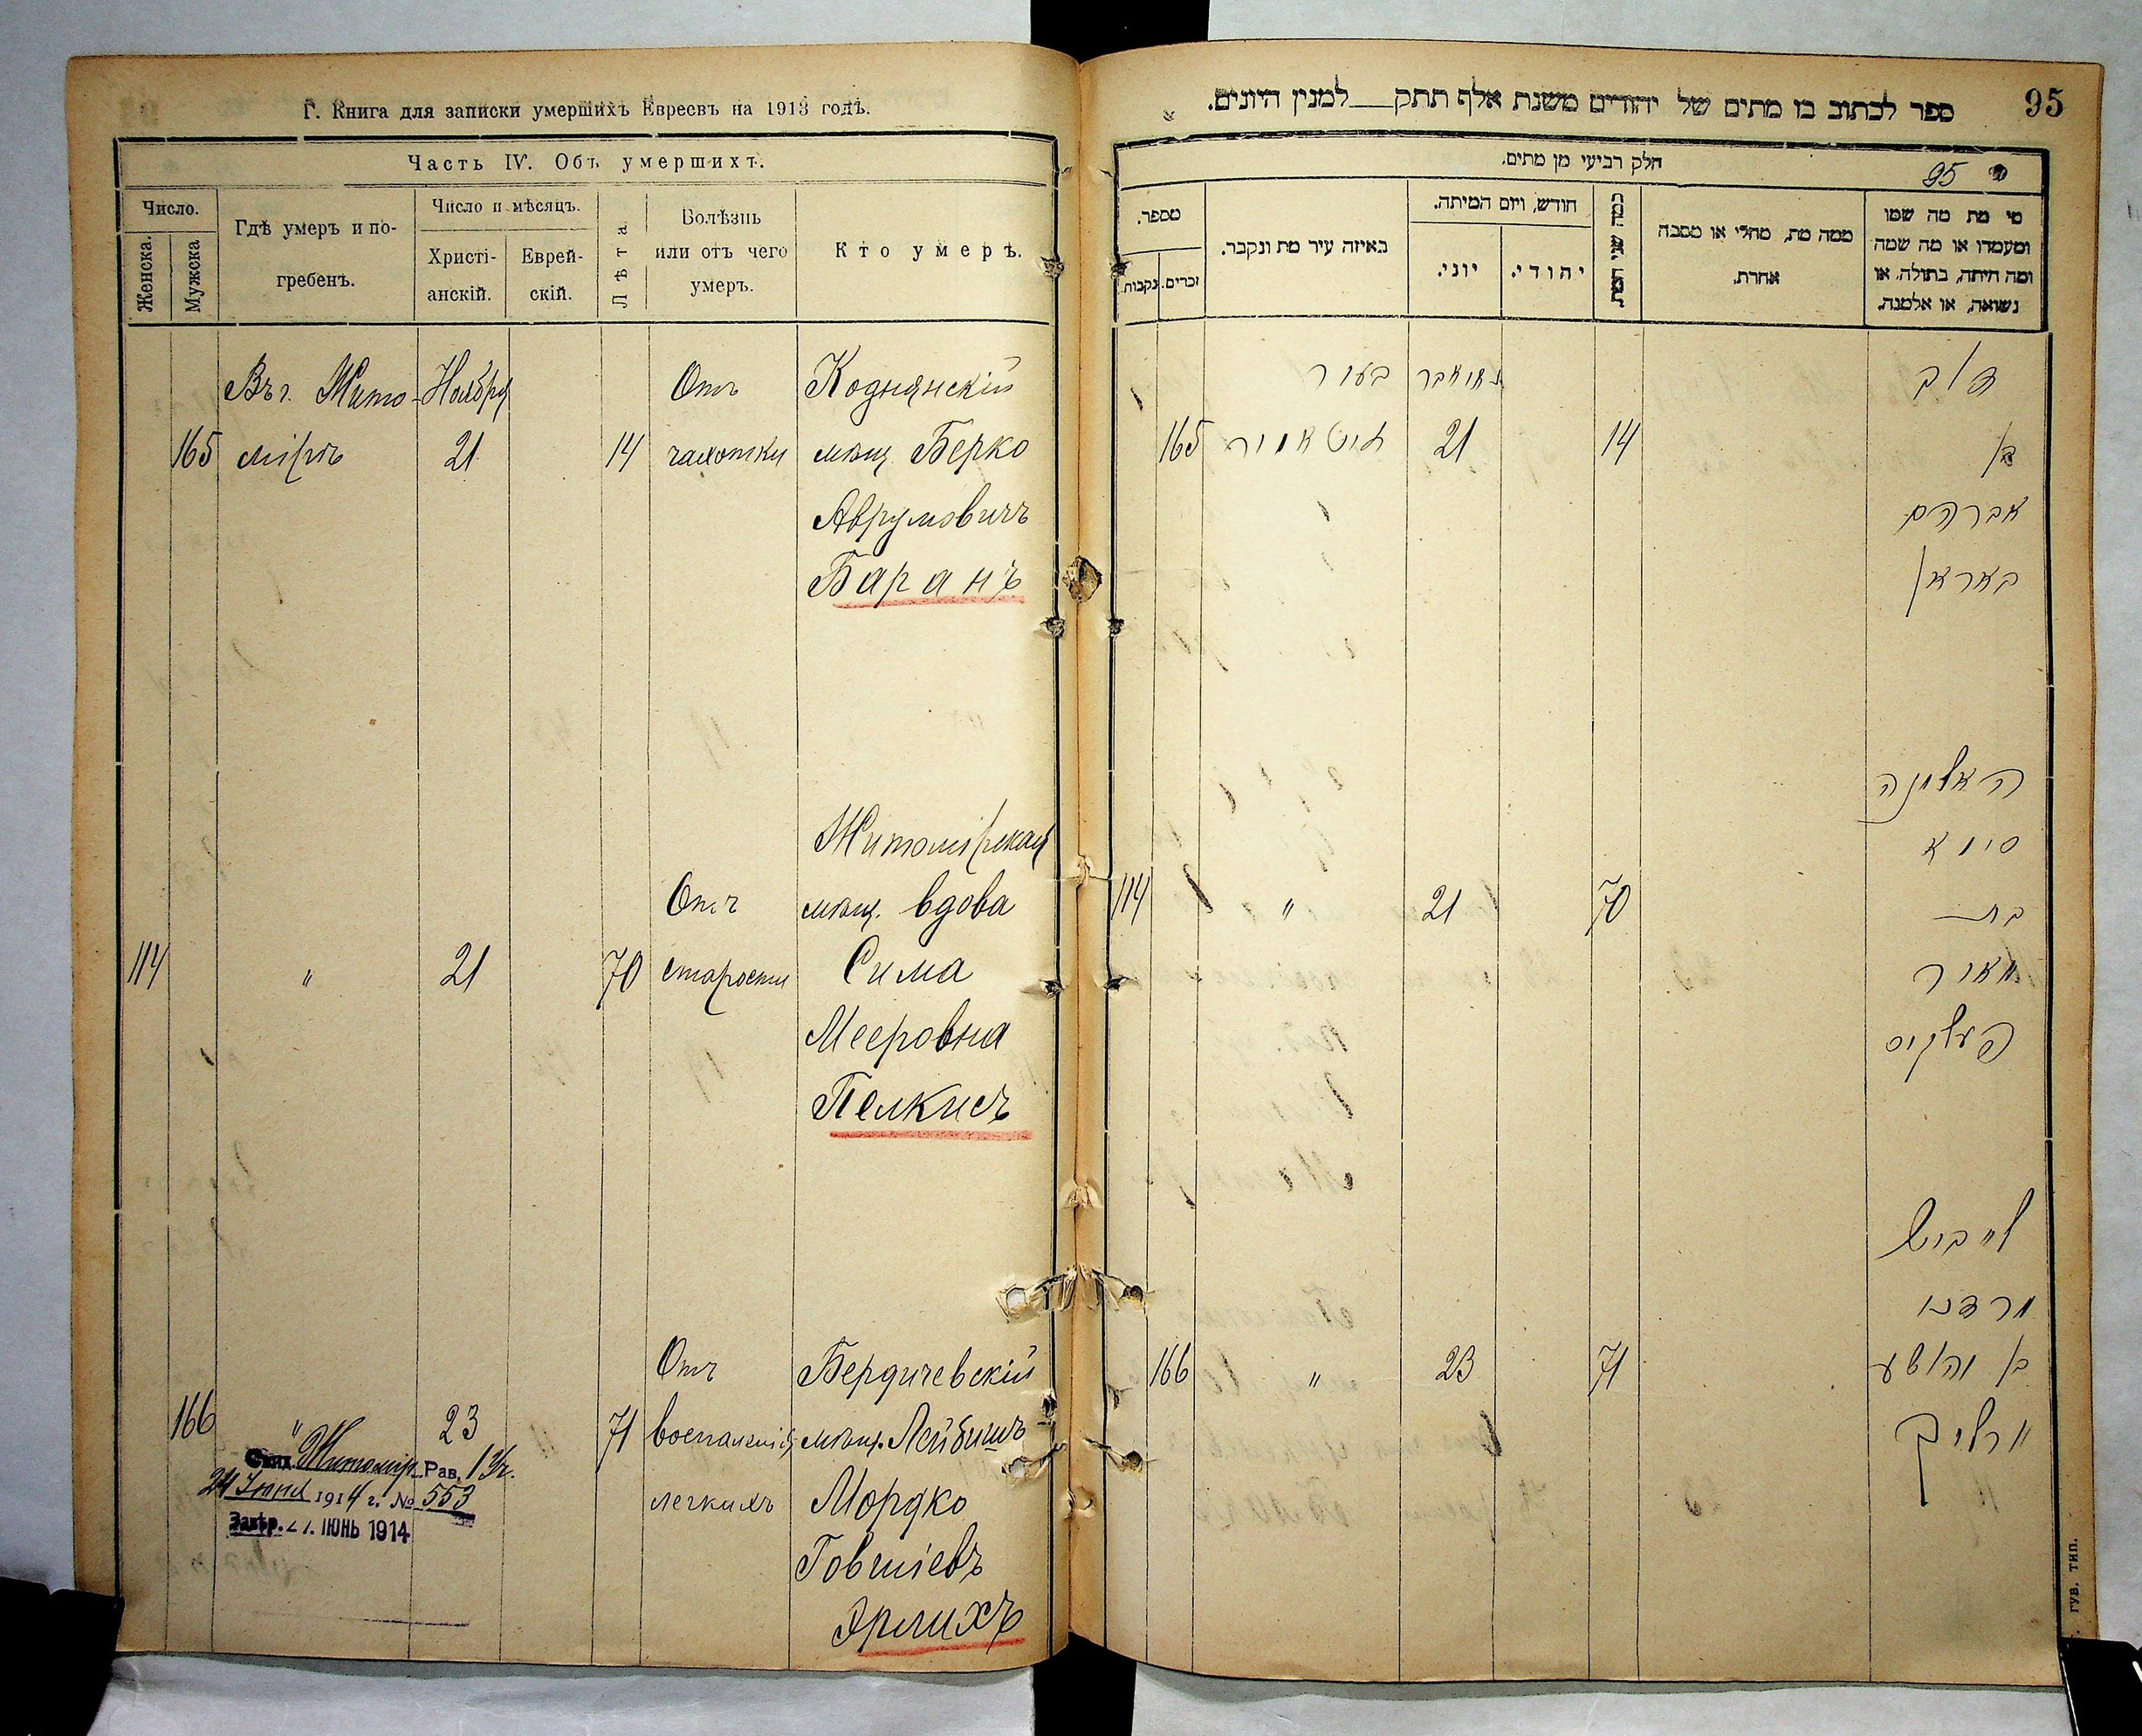 Г. Книга для записки умершихъ Евреевъ на 1913 годъ.
Часть IV. Объ умершихъ.
Число.
Женска.
Мужска
Гдѣ умеръ и по-
гребенъ.
Число и мѣсяцъ.
Христі-
анскій.
Еврей-
скій.
Лѣта
Болѣзнь
или отъ чего
умеръ.
Кто умеръ.
Въ г. Жито-
Ноября
Отъ
Коднянскій
165
мірѣ
21
14
чахотки
мѣщ Берко
Аврумовичъ
Баранъ
Житомірская
Отъ
мѣщ. вдова
114
"
21
70
старости
Сима
Мееровна
Пелкисъ
Отъ
Бердичевскій
166
"
23
71
воспаленія
мѣщ. Лейбишъ
легкихъ
Мордко
Говшіевъ
Эрлихъ
Житомір. Рав. 1 Уч.
24 Іюня 1914 г. № 553
Завѣр. 27. ІЮНЬ 1914
95
ספר לכתוב בו מתים של יהודים משנת אלף תתק למנין היונים.
חלק רביעי מן מתים.
95
מספר.
נקבות
זכרים.
באיזה עיר מת ונקבר.
חודש, ויום המיתה.
יוני.
יהודי.
כמה שני המת
ממה מת, מחלי או מסבה
אחרת.
מי מת מה שמו
ומעמדו או מה שמה
ומה היתה, בתולה, או
נשואה, או אלמנה.
בעיר
דוב
165
זיטאמיר
21
14
בן
אברהם
באראן
האלמנה
סימא
114
"
21
70
בת
מאיר
פעלקיס
לייביש
מרדכי
166
"
23
71
בן יהושע
ערליך
губ. тип.